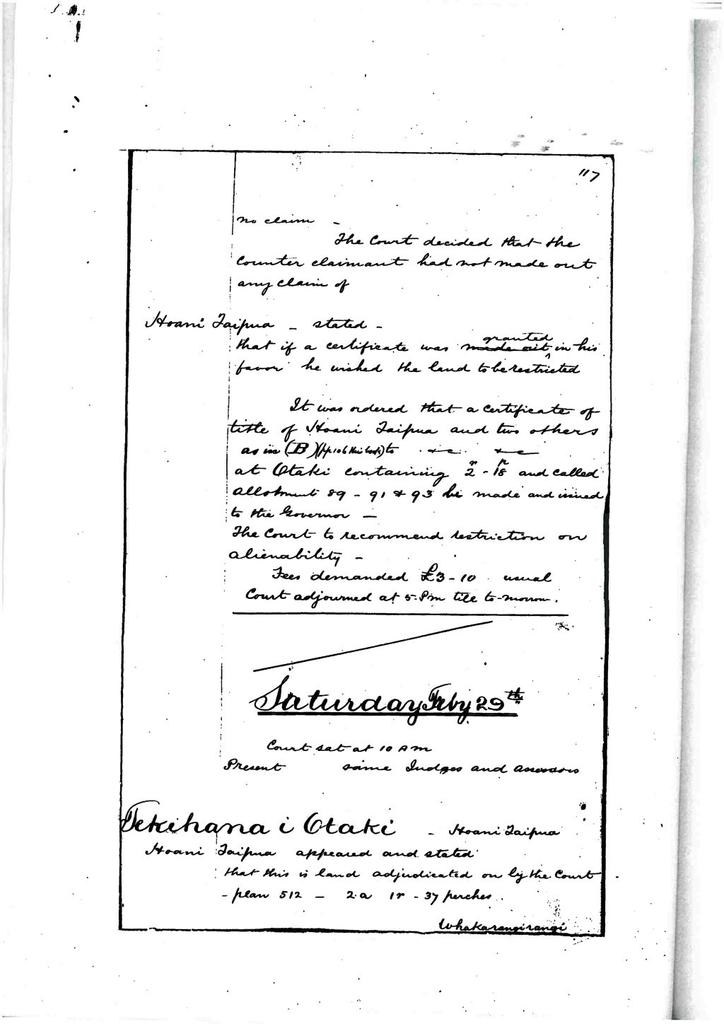 117
no claim -
The Court decided that the
Counter claimant had not made out
any claim of
Hoani Taipua - stated -
that if a certificate was made out granted in his
favor he wished the land to be restricted
It was ordered that a certificate of
title of Hoani Taipua and two others
as in (B) to &c &c
at Otaki containing 2 - 18 and called
allotment 89 - 91 & 93 be made and issued
to the Governor -
The Court to recommend restriction on
alienability -
Fees demanded £3-10 usual
Court adjourned at 5. Pm till to-morrow.
Saturday Feby 29th
Court sat at 10 am
Present same Judges and assessors
Tekihana i Otaki - Hoani Taipua
Hoani Taipua appeared and stated
that this is land adjudicated on by the Court
- plan 512 - 2a 1r - 37 perches.
Whakarangirangi